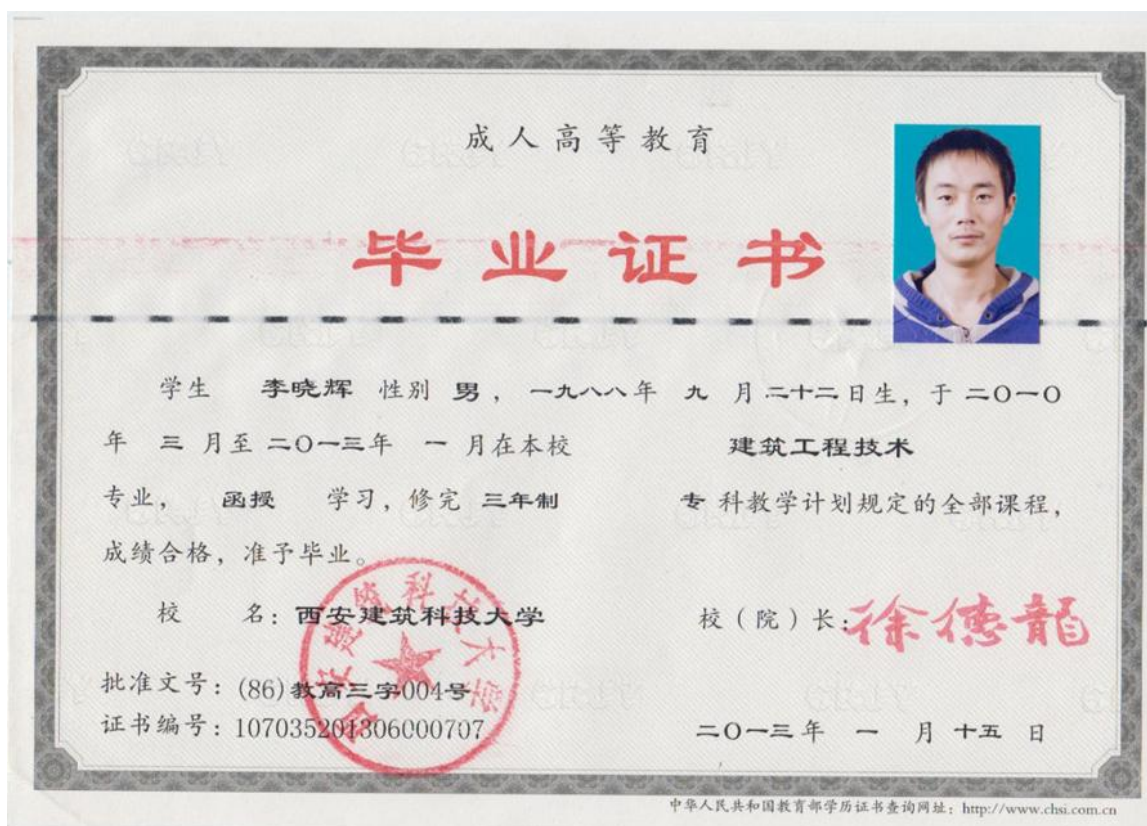 成人高等教育
毕业证书
学生 李晓辉 性别 男，一九八八年 九 月二十二日生，于二〇一〇
年 三 月至二〇一三年 一 月在本校 建筑工程技术
专业， 函授 学习，修完 三年制 专 科教学计划规定的全部课程，
成绩合格，准予毕业。
校 名：西安建筑科技大学
西安建筑科技大学
校（院）长：徐德龍
批准文号：(86)教高三字004号
证书编号：107035201306000707
二〇一三年 一 月 十五 日
中华人民共和国教育部学历证书查询网址：http://www.chsi.com.cn